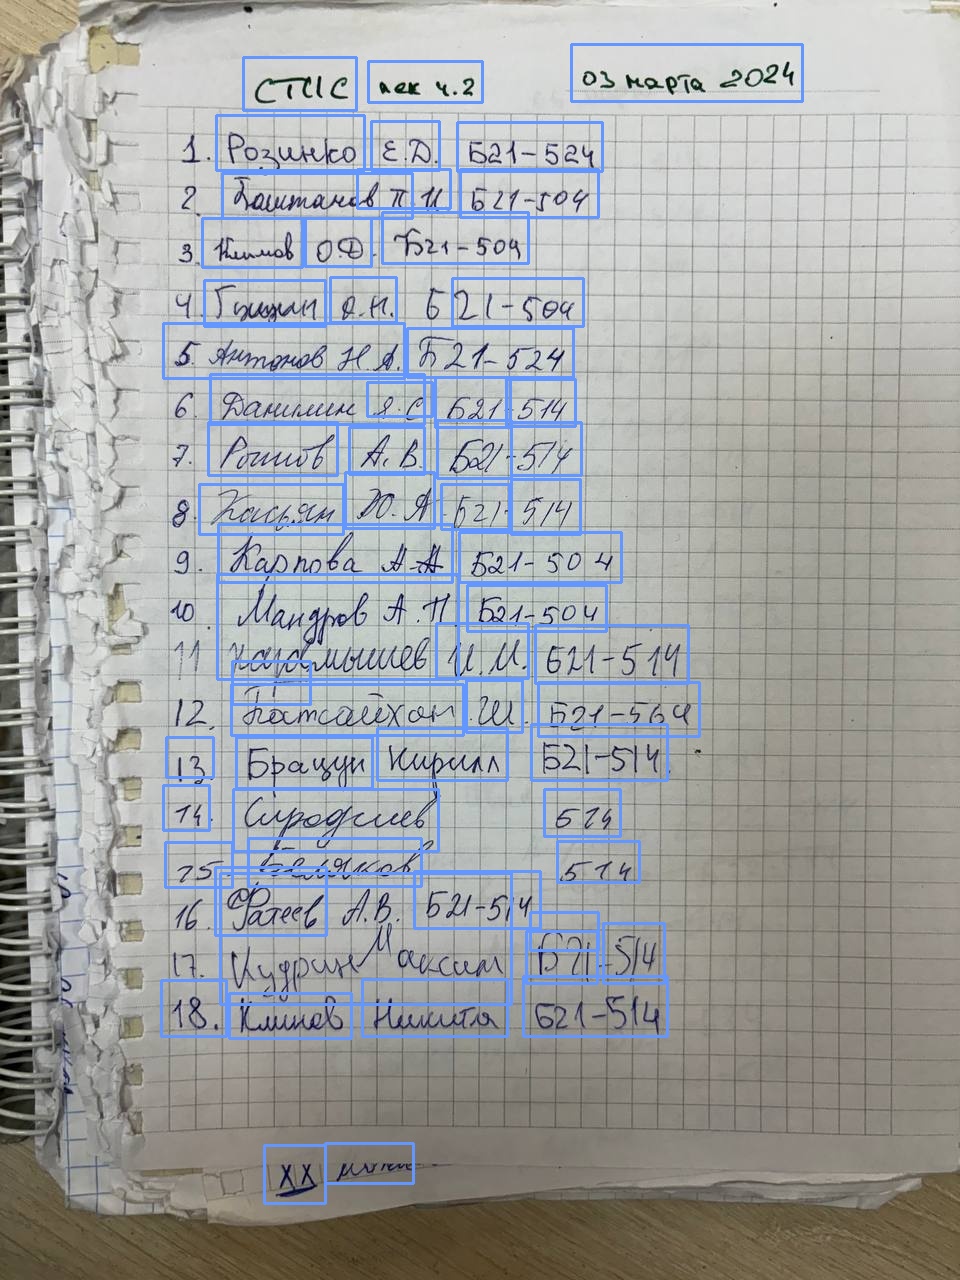 СТПС лек ч.2 03 марта 2024
1. Розинко Е.Д. Б21-524
2. Баштанов П.И Б21-504
3. Климов О.Д. Б21-504
4. Гущин О.Н. Б21-504
5. Антонов Н.А. Б21-524
6. Данилин Я.С Б21-514
7. А.В. Б21-514
8. Касьян Ю.А Б21-514
9. Карпова А.А Б21-504
10. Мандров А.П. Б21-504
11 Карамышев И.М. Б21-514
12. Батсайхан Ш. Б21-564
13. Брацун Кирилл Б21-514
14. 514
15 Беляков 514
16. Фатеев А.В. Б21-514
17. Кудрин Максим Б21-514
18. Климов Никита Б21-514
XX